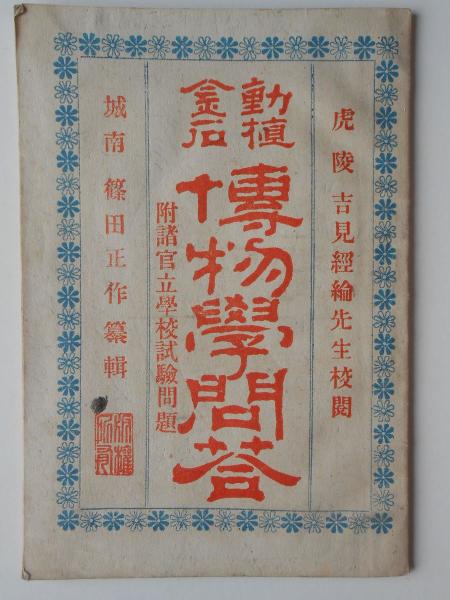 虎陵 吉見經綸先生校閱
動植
金石
博物學問答
附諸官立學校試驗問題
城南 篠田正作纂輯
版權
所有